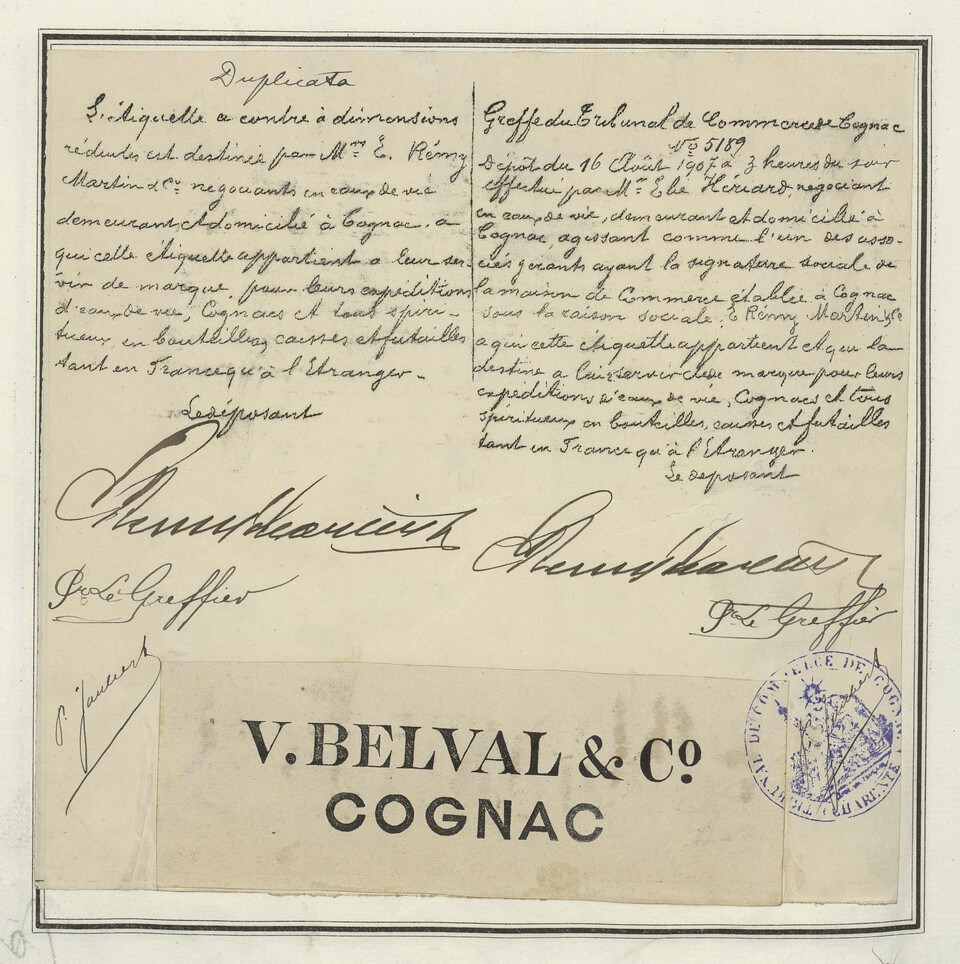 Duplicata
L'étiquette ci contre à dimensions
réduites est destinée par Mrs E. Rémy
Martin & Cie négociants en eaux de vie
demeurant et domicilié à Cognac, à
qui cette étiquette appartient a leur ser-
vir de marque, pour leurs expéditions
d'eaux de vie, Cognacs et tous spiri-
tueux, en bouteilles, caisses et futailles
tant en France qu'à l'Etranger.
Le déposant
Pr Le Greffier
P. Jaubert
Greffe du Tribunal de Commerce de Cognac
No 5189
Dépôt du 16 Août 1907 à 3 heures du soir
effectué par Mr Elie Hériard, négociant
en eaux de vie, demeurant et domicilié à
Cognac, agissant comme l'un des asso-
ciés gérants ayant la signature sociale de
la maison de Commerce établie à Cognac
sous la raison sociale, E Rémy Martin & Cie
a qui cette étiquette appartient et qui la
destine a leur servir de marque pour leurs
expéditions d'eaux de vie, Cognacs et tous
spiritueux en bouteilles, caisses et futailles
tant en France qu'à l'Etranger.
Le déposant
Pr Le Greffier
V. BELVAL & Co
COGNAC
TRIBUNAL DE COMMERCE DE COGNAC
CHARENTE